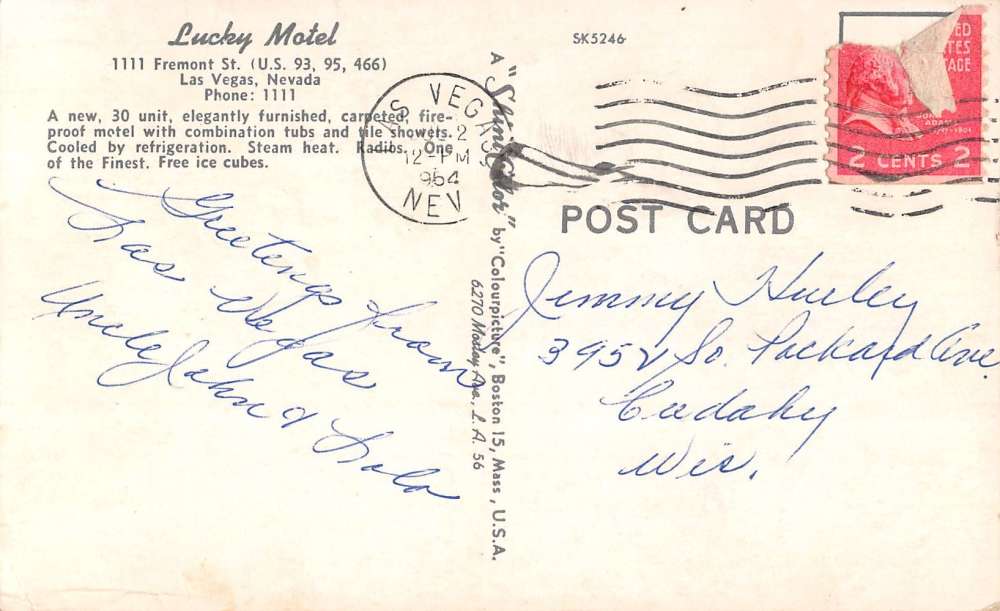 Lucky Motel
1111 Fremont St. (U.S. 93, 95, 466)
Las Vegas, Nevada
Phone: 1111
A new, 30 unit, elegantly furnished, carpeted, fire-
proof motel with combination tubs and tile showers.
Cooled by refrigeration. Steam heat. Radios. One
of the Finest. Free ice cubes.
Greetings from
Las Vegas
Uncle John &
SK5246
POST CARD
AS VEGAS
12-PM
1954
NEV
ED
TES
AGE
JOHN
ADAMS
2 CENTS 2
A "Shini-Color" by "Colourpicture", Boston 15, Mass., U.S.A.
6270 Ave., L. A. 56
Jimmy Hurley
3952 So. Packard Ave.
Cudahy
Wis.